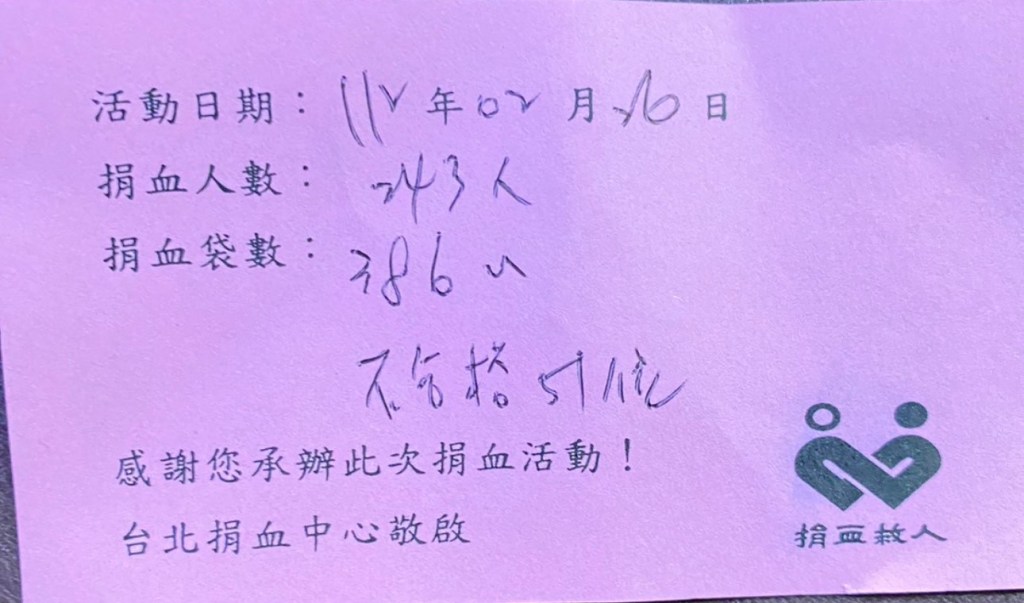 活動日期：112年02月26日
捐血人數：243人
捐血袋數：386
不合格51位
感謝您承辦此次捐血活動！
台北捐血中心敬啟
捐血救人